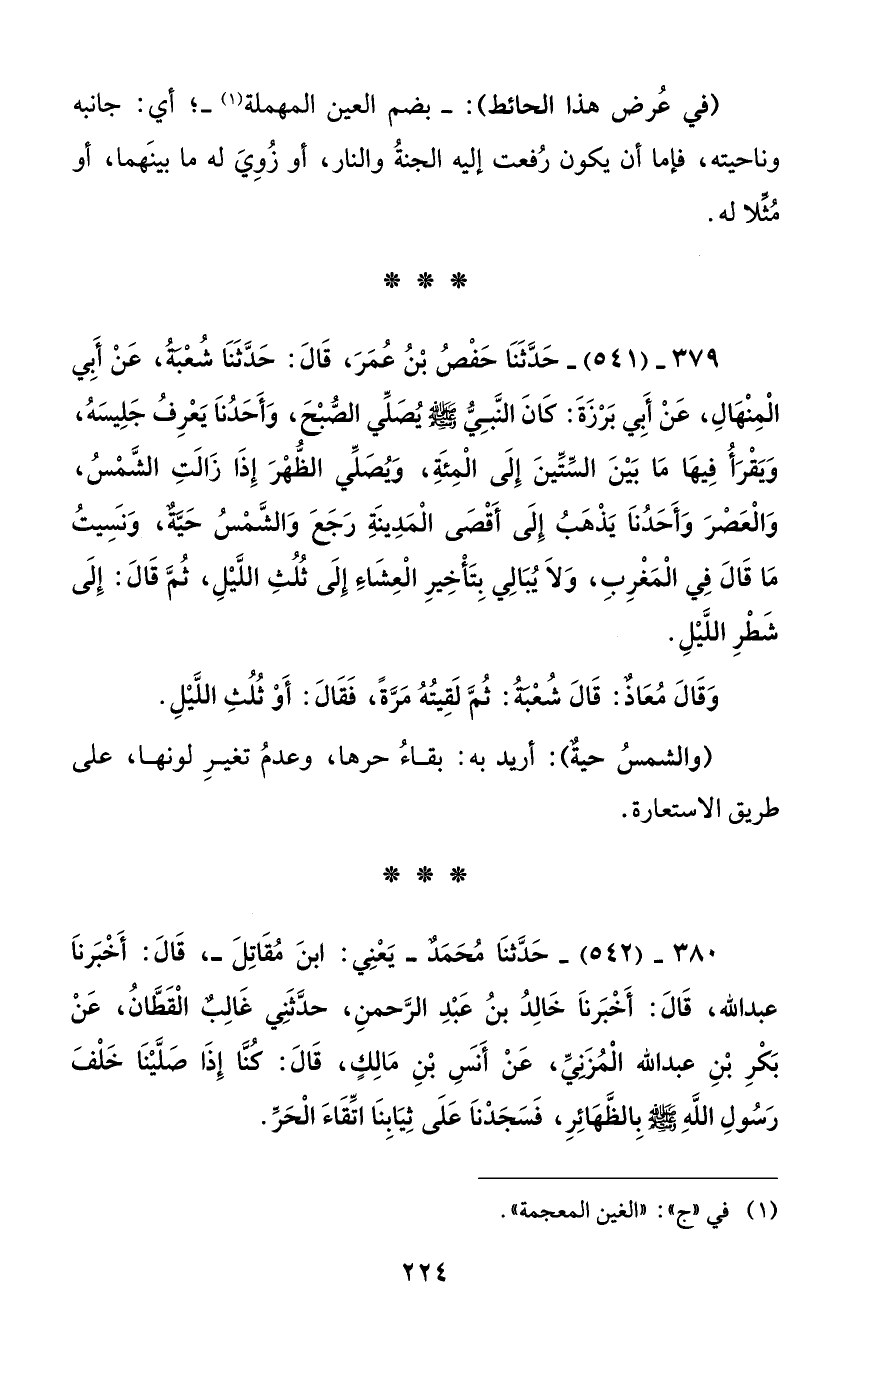 (في عُرض هذا الحائط): ـ بضم العين المهملة(١) ـ؛ أي: جانبه
وناحيته، فإما أن يكون رُفعت إليه الجنةُ والنار، أو زُوِيَ له ما بينَهما، أو
مُثِّلا له.
* * *
٣٧٩ ـ (٥٤١) ـ حَدَّثَنَا حَفْصُ بْنُ عُمَرَ، قَالَ: حَدَّثَنَا شُعْبَةُ، عَنْ أَبِي
الْمِنْهَالِ، عَنْ أَبِي بَرْزَةَ: كَانَ النَّبِيُّ ﷺ يُصَلِّي الصُّبْحَ، وَأَحَدُنَا يَعْرِفُ جَلِيسَهُ،
وَيَقْرَأُ فِيهَا مَا بَيْنَ السِّتِّينَ إِلَى الْمِئَةِ، وَيُصَلِّي الظُّهْرَ إِذَا زَالَتِ الشَّمْسُ،
وَالْعَصْرَ وَأَحَدُنَا يَذْهَبُ إِلَى أَقْصَى الْمَدِينَةِ رَجَعَ وَالشَّمْسُ حَيَّةٌ، وَنَسِيتُ
مَا قَالَ فِي الْمَغْرِبِ، وَلاَ يُبَالِي بِتَأْخِيرِ الْعِشَاءِ إِلَى ثُلُثِ اللَّيْلِ، ثُمَّ قَالَ: إِلَى
شَطْرِ اللَّيْلِ.
وَقَالَ مُعَاذٌ: قَالَ شُعْبَةُ: ثُمَّ لَقِيتُهُ مَرَّةً، فَقَالَ: أَوْ ثُلُثِ اللَّيْلِ.
(والشمسُ حيةٌ): أريد به: بقاءُ حرها، وعدمُ تغييرِ لونها، على
طريق الاستعارة.
* * *
٣٨٠ ـ (٥٤٢) ـ حَدَّثنَا مُحَمَدٌ ـ يَعْنِي: ابنَ مُقَاتِلَ ـ، قَالَ: أَخْبَرنَا
عبدالله، قَالَ: أَخْبَرنَا خَالِدُ بنُ عَبْدِ الرَّحمنِ، حدَّثَنِي غَالِبٌ الْقَطَّانُ، عَنْ
بَكْرِ بْنِ عبدالله الْمُزَنِيِّ، عَنْ أَنَسِ بْنِ مَالِكٍ، قَالَ: كُنَّا إِذَا صَلَّيْنَا خَلْفَ
رَسُولِ اللَّهِ ﷺ بِالظَّهَائِرِ، فَسَجَدْنَا عَلَى ثِيَابِنَا اتِّقَاءَ الْحَرِّ.
(١) في «ج»: «الغين المعجمة».
٢٢٤